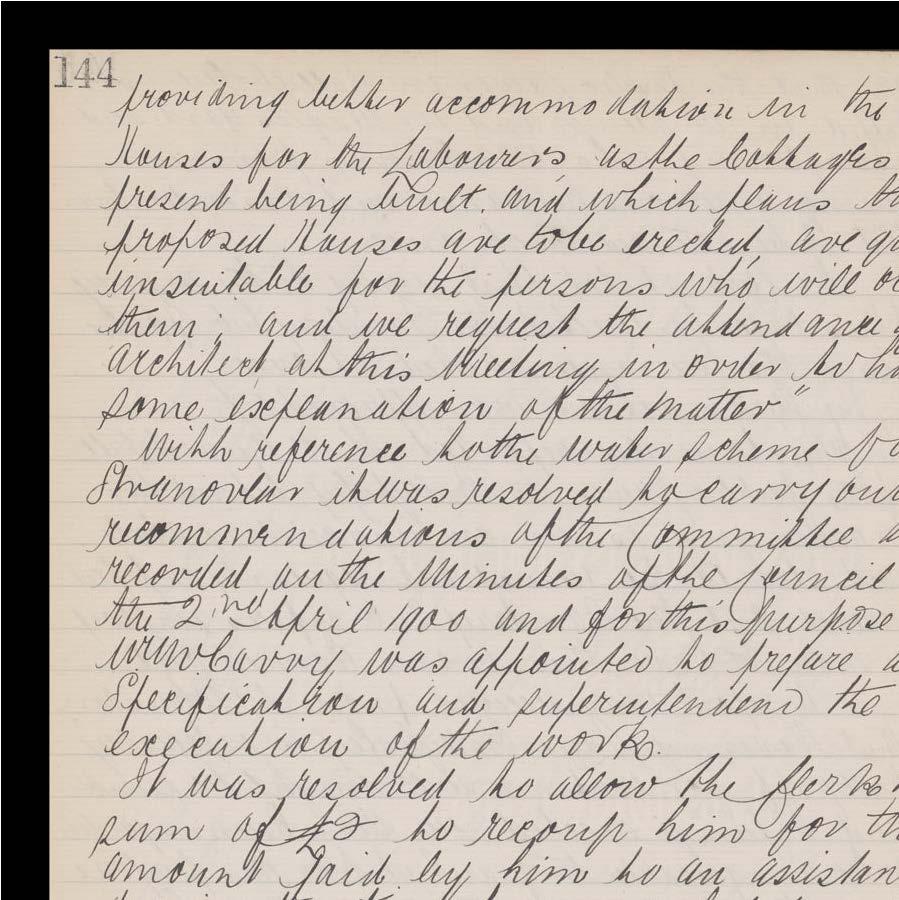 144
providing better accommodation in the
Houses for the Labourers as the Cottages
present being built. and which plans th
proposed Houses are to be erected, are qu
unsuitable for the persons who will oc
them; and we request the attendance
Architect at this Meeting in order to ha
some explanation of the matter"
With reference to the water scheme fo
Stranorlar it was resolved to carry out
recommendations of the Committee a
recorded on the Minutes of the Council
the 2nd April 1900 and for this purpose
was appointed to prepare a
Specification and superintend the
execution of the work.
It was resolved to allow the Clerk
sum of £2 to recoup him for th
amount paid by him to an assistan